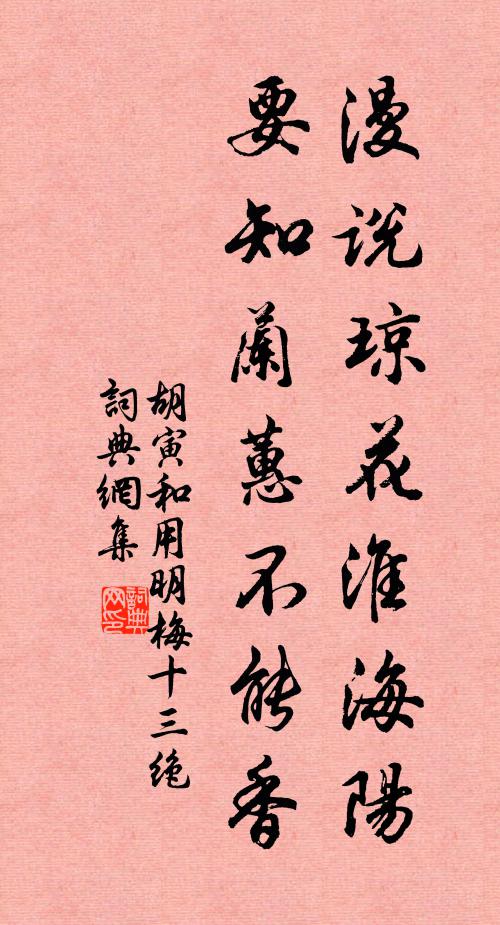 漫说琼花淮海陽
要知蘭蕙不能香
胡寅和用明梅十三绝
詞典網集
詞典网印